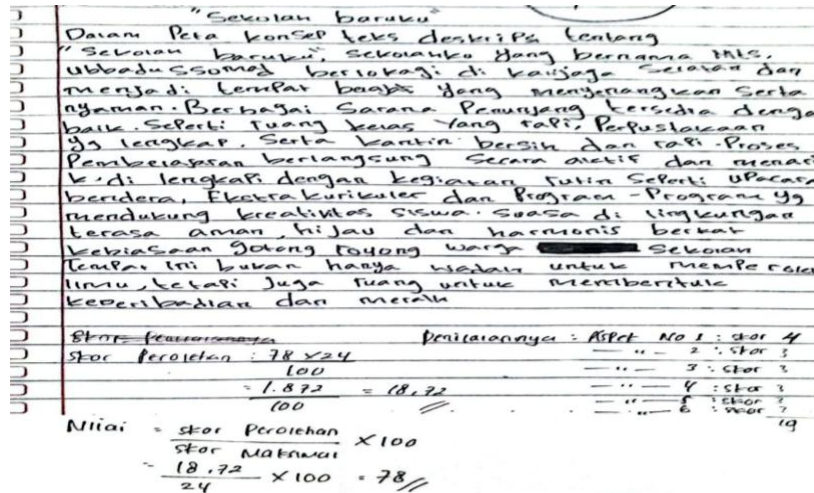 "Sekolah baruku"
Dalam Peta konsep teks deskripsi tentang
"Sekolah baruku", sekolahko yang bernama Mts.
ubbadussomad berlokasi di kawjaga selatan dan
menjadi tempat yang menyenangkan serta
nyaman. Berbagai Sarana Penunjang tersedia denga
baik. Seperti ruang kelas yang rapi, Perpustakaan
yg lengkap, Serta kantin bersih dan rapi. Proses
Pembelajaran berlangsung Secara aktif dan menari
k. di lengkapi dengan kegiatan rutin Seperti upacara
bendera, Ekstrakurikuler dan Program-Program yg
mendukung kreatifitas siswa. Suasa di lingkungan
terasa aman, hijau dan harmonis berkat
kebiasaan gotong royong warga Sekolah
Tempat ini bukan hanya wadah untuk memperoleh
ilmu, tetapi Juga ruang untuk membentuk
keperibadian dan meraih
Penilaiannya : Aspek No 1 : skor 4
Skor Perolehan : 78 x 24
100
— " — 2 : skor 3
— " — 3 : skor 3
= 1.872 = 18,72
100
— " — 4 : skor 3
— " — 5 : skor 3
— " — 6 : skor
19
Nilai = skor Perolehan x 100
skor Maksimal
= 18,72 x 100 = 78
24